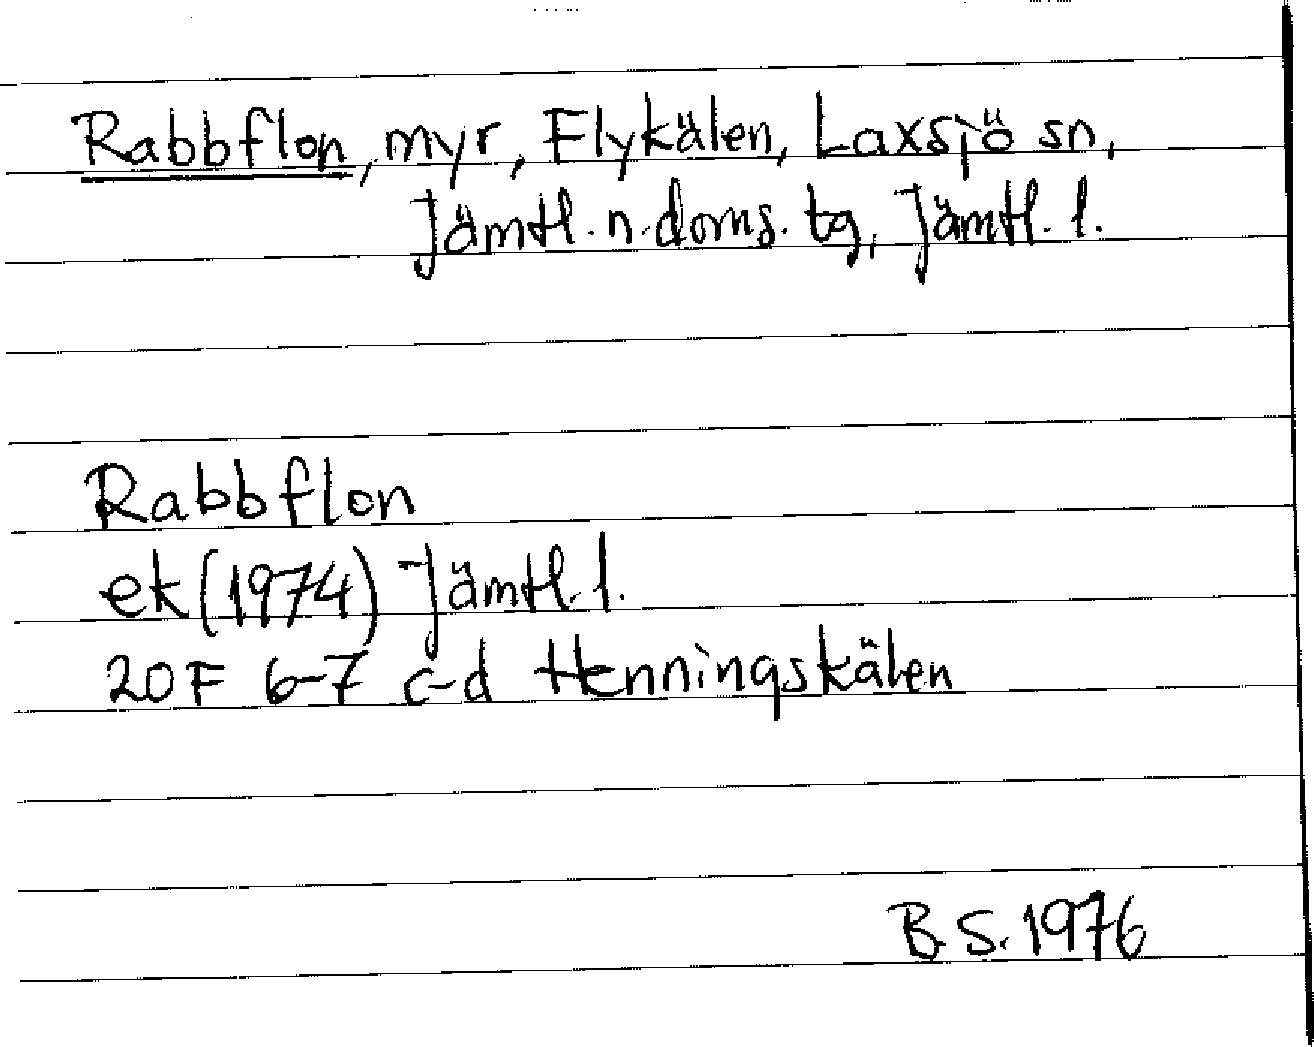 Rabbflon, myr, Flykälen, Laxsjö sn,
Jämtl. n. doms. tg, Jämtl. l.
Rabbflon
ek (1974) Jämtl. l.
20F 6-7 c-d Henningskälen
B.S. 1976